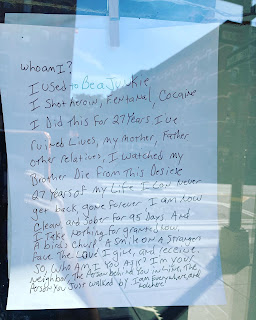 who am I?
I used to Be a Junkie
I shot heroin, Fentanal, Cocaine
I Did This For 27 Years I've
ruined Lives, my mother, Father
other relatives, I watched my
Brother Die From This Desiese
27 years of my Life I can never
get back, gone Forever I am now
Clean, and Sober For 95 Days And
I Take Nothing For granted now,
A birds Chirp? A smile on A strangers
Face The Love I give, and receive.
So, Who Am I You Ask? I'm your
Neighbor, The Person Behind You in
Person You Just Walked by I am Everywhere, and